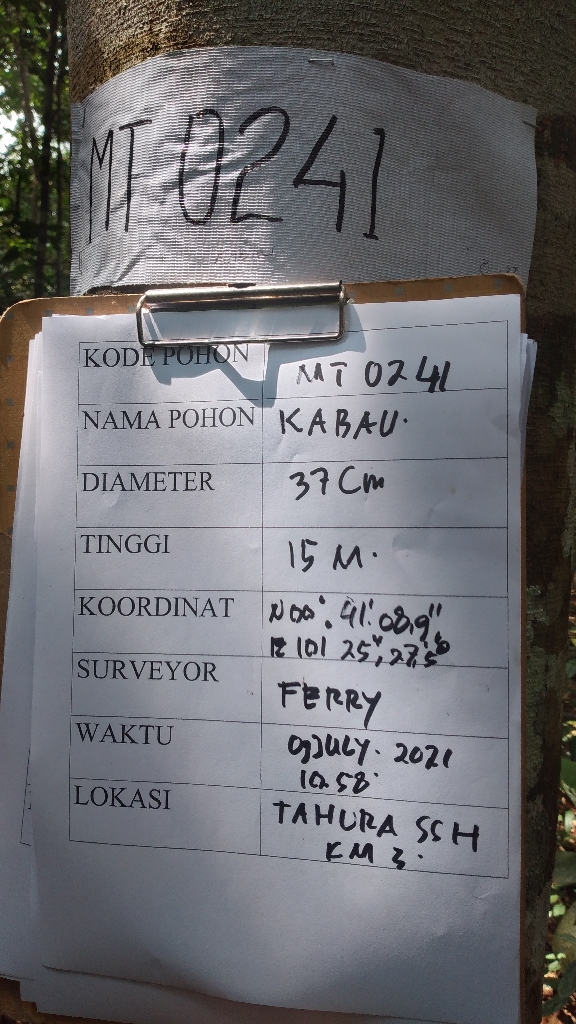 MT 0241
KODE POHON MT 0241
NAMA POHON KABAU.
DIAMETER 37 Cm
TINGGI 15 M.
KOORDINAT N 00°. 41'. 08,9"
E 101 25', 27,5"
SURVEYOR FERRY
WAKTU 09 JULY. 2021
10.58
LOKASI TAHURA SSH
KM 3.